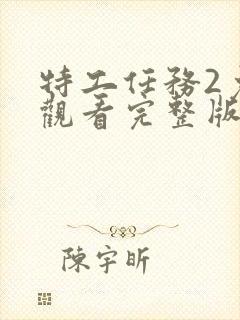 特工任務2
觀看完整版
陳宇昕